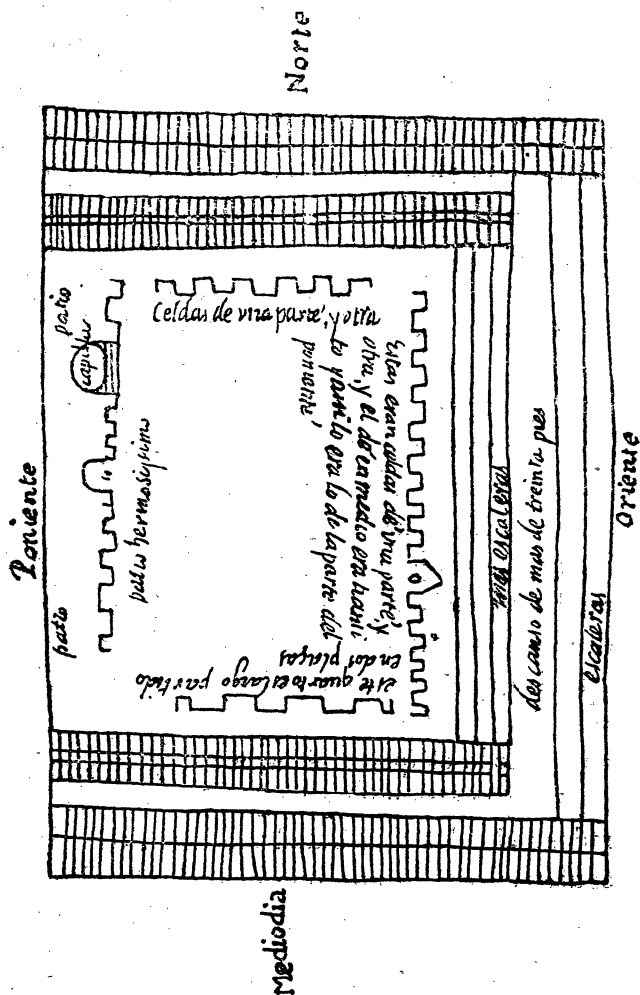 Norte
Poniente
Oriente
Mediodia
patio
patio
capilla
patio hermosissimo
Celdas de vna parte, y otra
Estas eran celdas de vna parte, y
otra, y el de en medio era hani
to y assi lo era lo de la parte del
poniente,
este quarto es largo partido
en dos plaças
mas escaleras
descanso de mas de treinta pies
escaleras